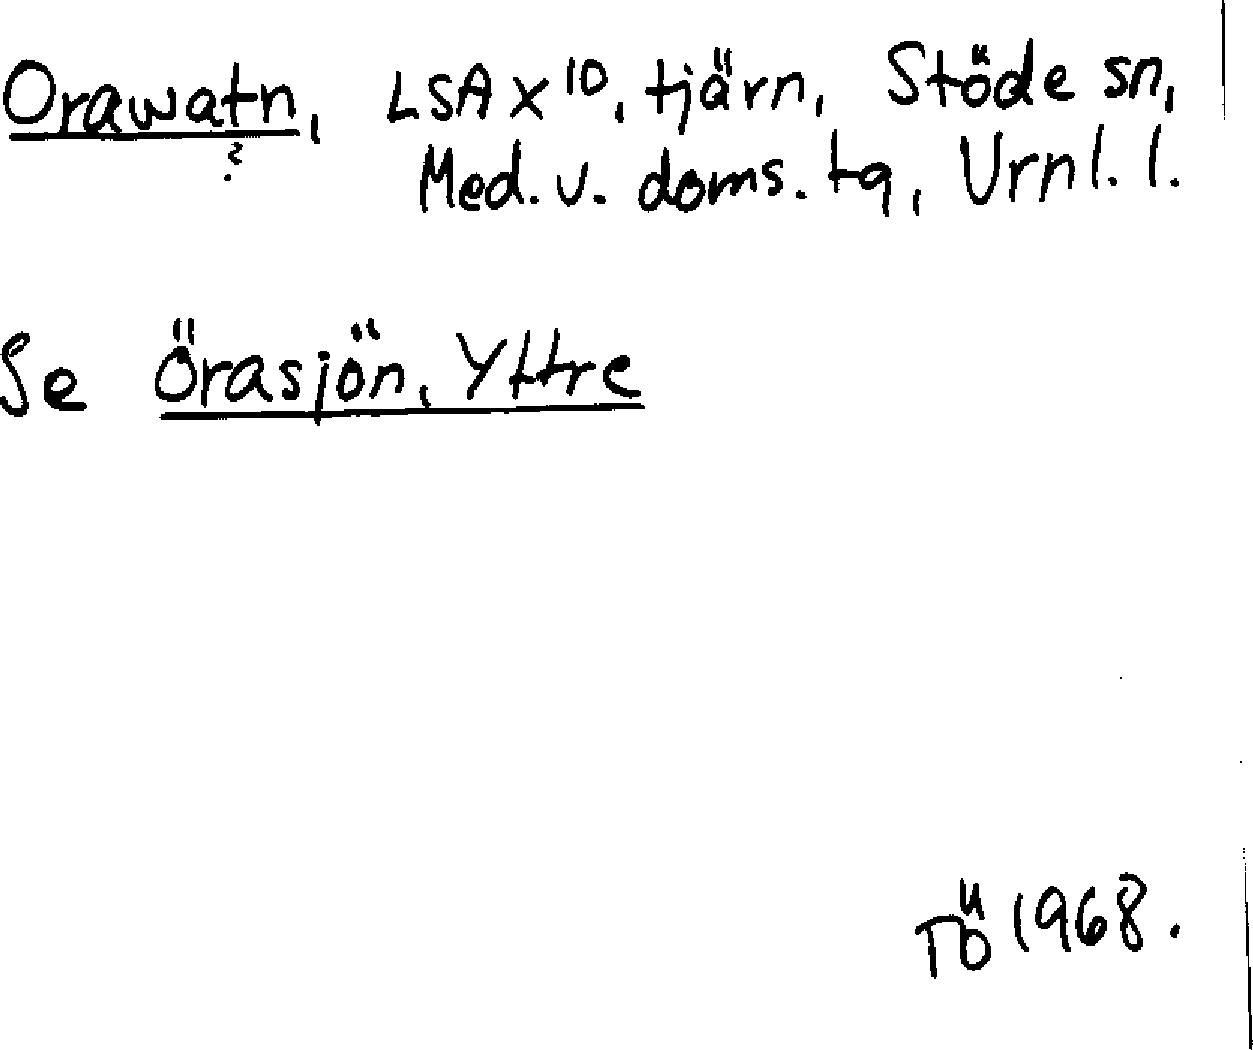 Orawatn, LSA X 10, tjärn, Stöde sn,
? Med. v. doms. tg, Vrnl. l.
Se Örasjön, Yttre
TÖ 1968.